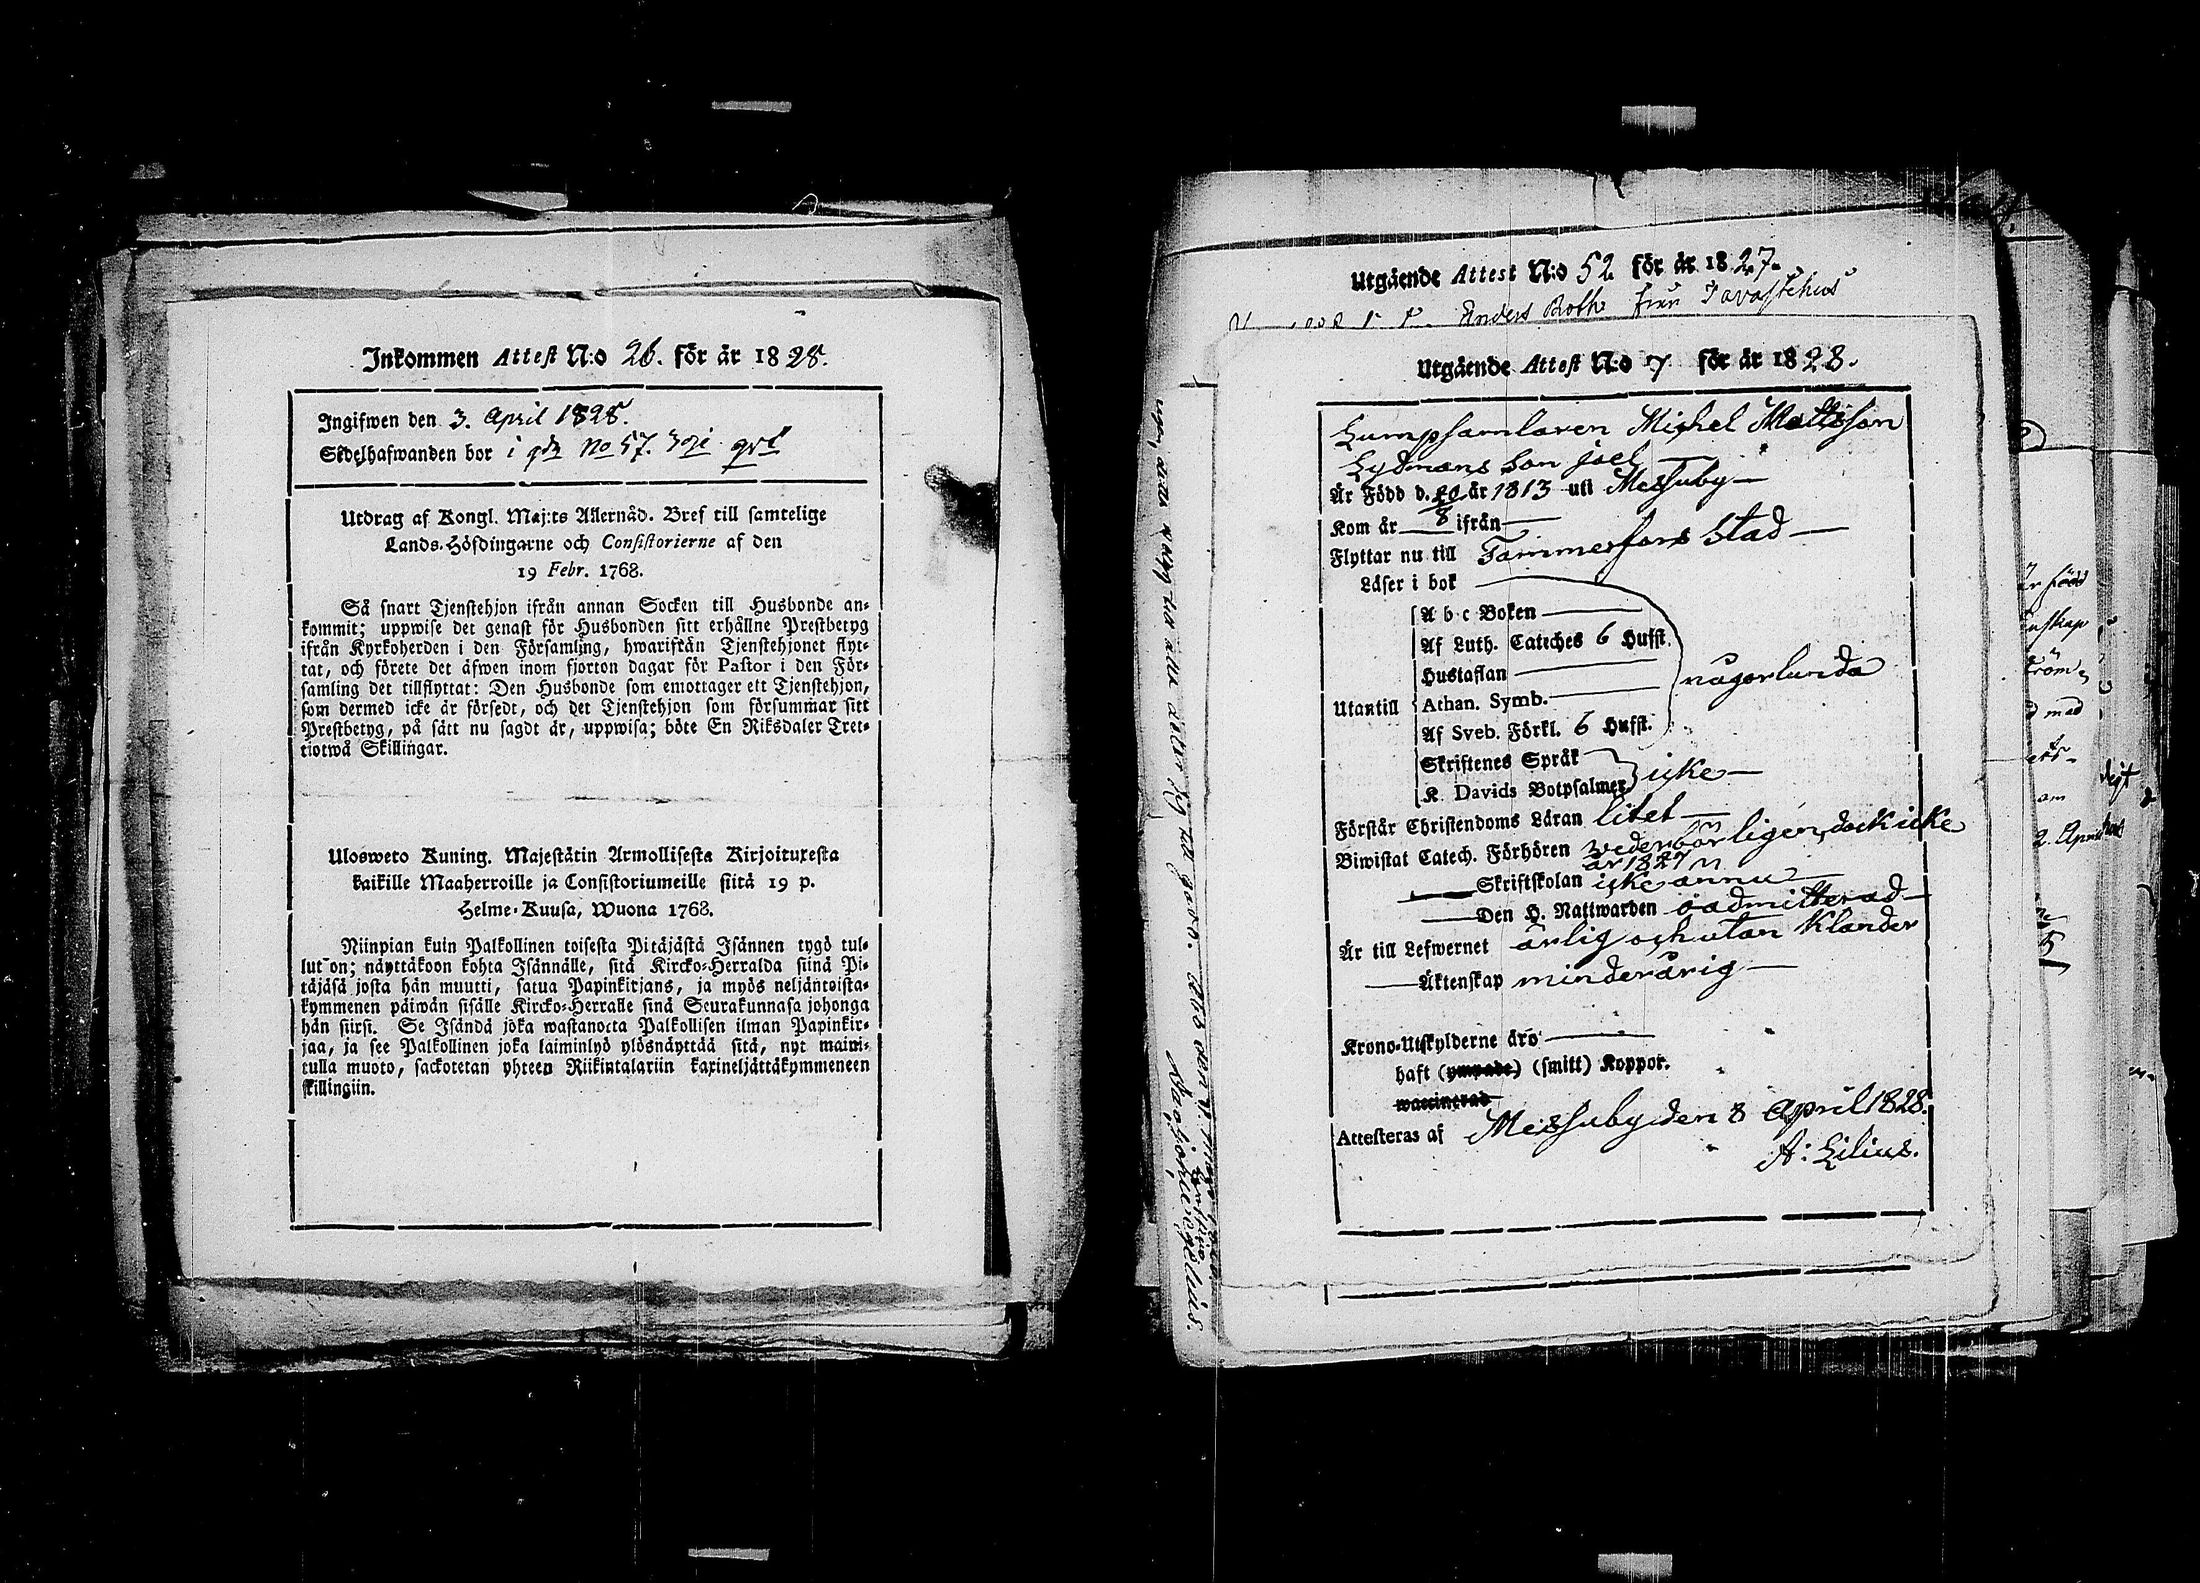 Inkommen Attest N:o 26. för år 1828.
Ingifwen den 3. April 1828.
Sedelhafwanden bor i No 57.
Utdrag af Kongl. Maj:ts Allernåd. Bref till samtelige
Lands-Höfdingarne och Consistorierne af den
19 Febr. 1768.
Så snart Tjenstehjon ifrån annan Socken till Husbonde an-
kommit; uppwise det genast för Husbonden sitt erhållne Prestbetyg
ifrån Kyrkoherden i den Församling, hwarifrån Tjenstehjonet flyt-
tat, och förete det äfwen inom fjorton dagar för Pastor i den För-
samling det tillflyttat: Den Husbonde som emottager ett Tjenstehjon,
som dermed icke är försedt, och det Tjenstehjon som försummar sitt
Prestbetyg, på sätt nu sagdt är, uppwisa; böte En Riksdaler Tret-
tiotwå Skillingar.
Ulosweto Kuning. Majestätin Armollisesta Kirjoituxesta
kaikille Maaherroille ja Consistoriumeille siitä 19 p.
Helme-Kuusa, Wuona 1768.
Niinpian kuin Palkollinen toisesta Pitäjästä Isännen tygö tul-
lut on; näyttäkoon kohta Isännälle, sitä Kircko-Herralda siinä Pi-
täjäsä josta hän muutti, saatua Papinkirjans, ja myös neljäntoista-
kymmenen päiwän sisälle Kircko-Herralle sinä Seurakunnasa johonga
hän siirsi. Se Isändä joka wastanotta Palkollisen ilman Papinkir-
jaa, ja see Palkollinen joka laiminlyö ylösnäyttää sitä, nyt maini-
tulla muoto, sackotetan yhteen Riikintalariin kaxineljättäkymmeneen
skillingiin.
Utgående Attest N:o 52 för år 1827.
Anders Roth från Tavastehus
Utgående Attest N:o 7 för år 1828.
Lumpsamlaren Michel Mattsson
Lydmans Son joel
Är Född d. 20/8 år 1813 uti Messuby
Kom år ifrån
Flyttar nu till Tammerfors Stad
Läser i bok
A b c Boken
Af Luth. Cateches 6 Hufst.
Hustaflan
någorlunda
Utantill Athan. Symb.
Af Sveb. Förkl. 6 Hufst.
Skriftenes Språk
icke
K. Davids Botpsalmer
Förstår Christendoms Läran litet
Biwistat Catech. Förhören wederbörligen, dock icke
år 1827
Skriftskolan icke ännu
Den H. Nattwarden oadmitterad
Är till Lefwernet ärlig och utan Klander
Äktenskap minderårig
Krono-Utskylderne äro
haft (ympade) (smitt) Koppor.
waccinerad
Attesteras af Messuby den 8 April 1828.
A: Lilius.